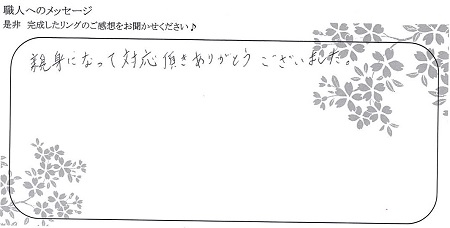 職人へのメッセージ
是非 完成したリングのご感想をお聞かせください♪
親身になって対応頂きありがとうございました。